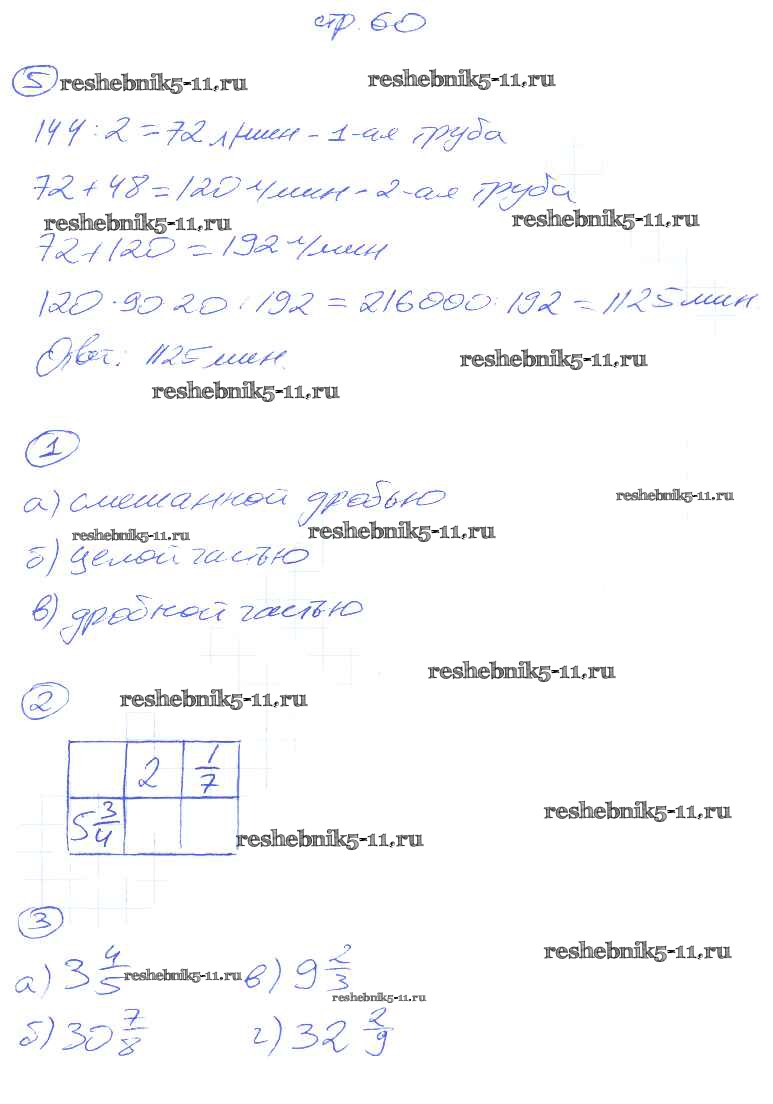 стр. 60
5 reshebnik5-11.ru reshebnik5-11.ru
144 : 2 = 72 л/мин - 1-ая труба
72 + 48 = 120 л/мин - 2-ая труба
reshebnik5-11.ru reshebnik5-11.ru
72 + 120 = 192 л/мин
120 · 90 · 20 : 192 = 216000 : 192 = 1125 мин.
Ответ: 1125 мин.
reshebnik5-11.ru
reshebnik5-11.ru
1
а) смешанной дробью
reshebnik5-11.ru
reshebnik5-11.ru reshebnik5-11.ru
б) целой частью
в) дробной частью
reshebnik5-11.ru
2 reshebnik5-11.ru
2 1/7
5 3/4
reshebnik5-11.ru
reshebnik5-11.ru
3
reshebnik5-11.ru
а) 3 4/5 reshebnik5-11.ru в) 9 2/3
reshebnik5-11.ru
б) 30 7/8 г) 32 2/9